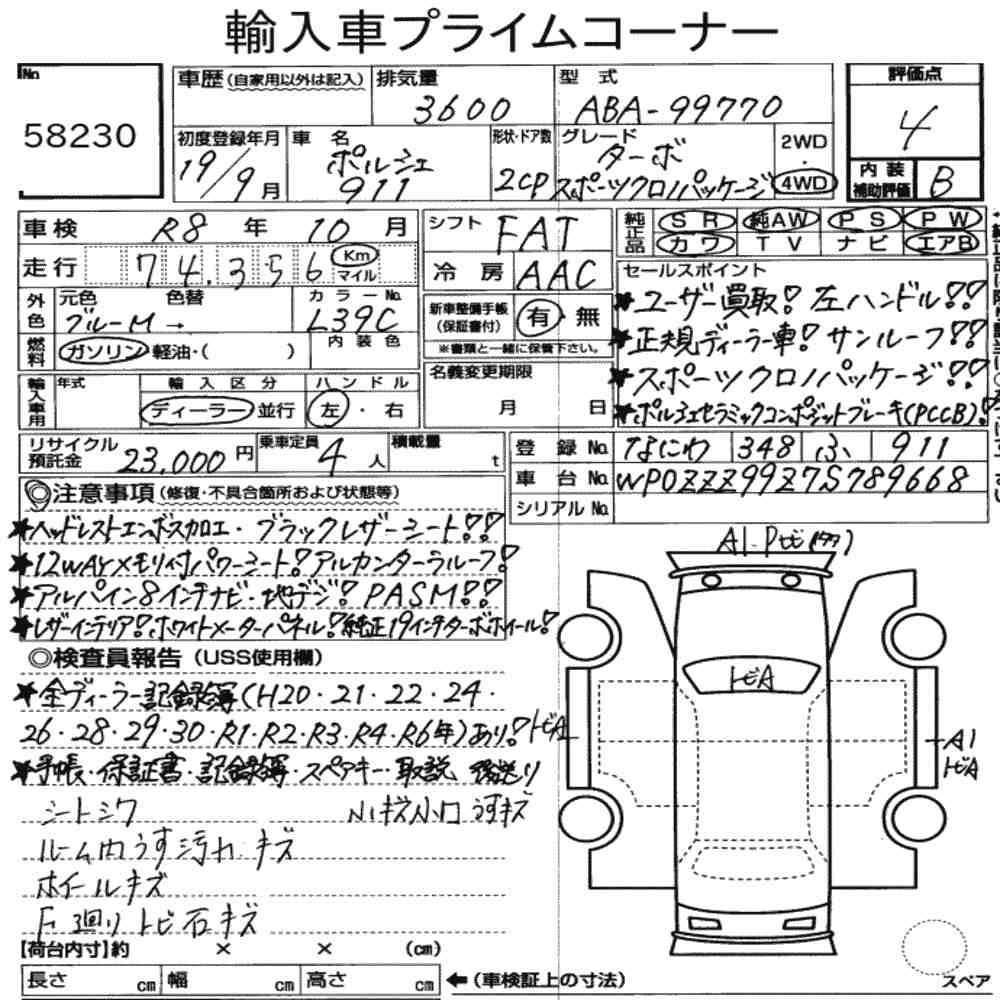 輸入車プライムコーナー
No.
58230
車歴 (自家用以外は記入)
排気量
3600
型式
ABA-99770
評価点
4
初度登録年月
19/9月
車名
ポルシェ
911
形状・ドア数
2CP
グレード
ターボ
スポーツクロノパッケージ
2WD
・
4WD
内装
補助評価
B
車検 R8 年 10 月
走行 74,356 Km
マイル
外色
元色 色替
ブルーM →
カラーNo.
L39C
内装色
燃料
ガソリン・軽油・( )
輸入車用
年式
輸入区分
ディーラー・並行
ハンドル
左・右
シフト FAT
冷房 AAC
新車整備手帳
(保証書付)
有・無
※書類と一緒に保管下さい。
名義変更期限
月 日
純正品
SR 純AW PS PW
カワ TV ナビ エアB
セールスポイント
★ユーザー買取! 左ハンドル!!
★正規ディーラー車! サンルーフ!!
★スポーツクロノパッケージ!!
★ポルシェセラミックコンポジットブレーキ(PCCB)!
リサイクル
預託金 23,000 円
乗車定員 4 人
積載量 t
登録No. なにわ 348 ふ 911
車台No. WP0ZZZ99Z7S789668
シリアルNo.
◎注意事項 (修復・不具合箇所および状態等)
★ヘッドレストエンボス加工・ブラックレザーシート!!
★12wayメモリ付パワーシート! アルカンターラルーフ!
★アルパイン8インチナビ・地デジ! PASM!!
★レザーインテリア! ホワイトメーターパネル! 純正19インチターボホイール!
◎検査員報告 (USS使用欄)
★全ディーラー記録簿 (H20・21・22・24・
26・28・29・30・R1・R2・R3・R4・R6年) あり!
★手帳・保証書・記録簿・スペアキー・取説 後送り
シートシワ 小キズ小凹 うすキズ
ルーム内うす汚れ キズ
ホイールキズ
F廻り トビ石キズ
A1・Pとビ(タタ)
トビA
トビA
A1
トビA
【荷台内寸】約 × × (cm)
長さ cm 幅 cm 高さ cm
←(車検証上の寸法)
スペア